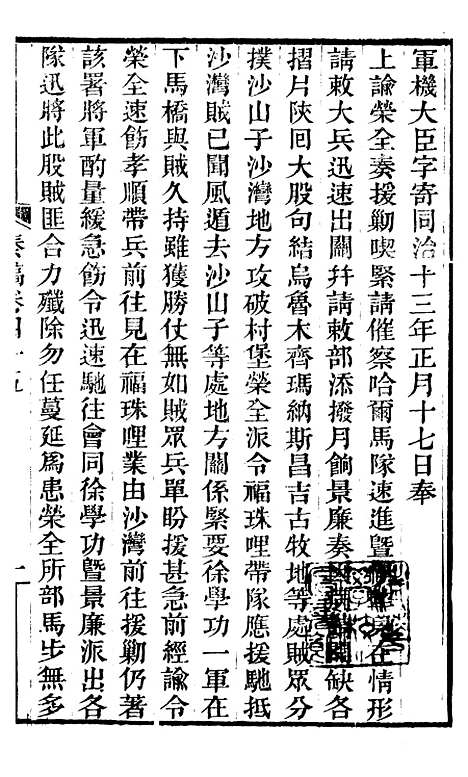 軍機大臣字寄同治十三年正月十七日奉
上諭榮全奏援勦喫緊請催察哈爾馬隊速進曁在情形
請敕大兵迅速出關幷請敕部添撥月餉景廉奏缺各
摺片陜回大股句結烏魯木齊瑪納斯昌吉古牧地等處賊眾分
撲沙山子沙灣地方攻破村堡榮全派令福珠哩帶隊應援馳抵
沙灣賊已聞風遁去沙山子等處地方關係緊要徐學功一軍在
下馬橋與賊久持雖獲勝仗無如賊眾兵單盼援甚急前經諭令
榮全速飭孝順帶兵前往見在福珠哩業由沙灣前往援勦仍著
該署將軍酌量緩急飭令迅速馳往會同徐學功曁景廉派出各
隊迅將此股賊匪合力殲除勿任蔓延爲患榮全所部馬步無多
奏稿卷四十五
一